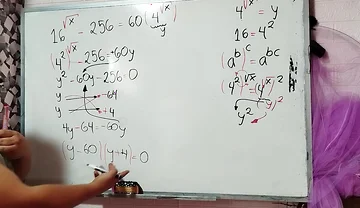 16^√x - 256 = 60(4^√x)
y
4^2√x - 256 = 60y
y² - 60y - 256 = 0
y -64
y +4
4y - 64 = -60y
(y - 60)(y + 4) = 0
4^√x = y
16 = 4²
(a^b)^c = a^bc
(4²)^√x = (4^√x)²
y²
y)²